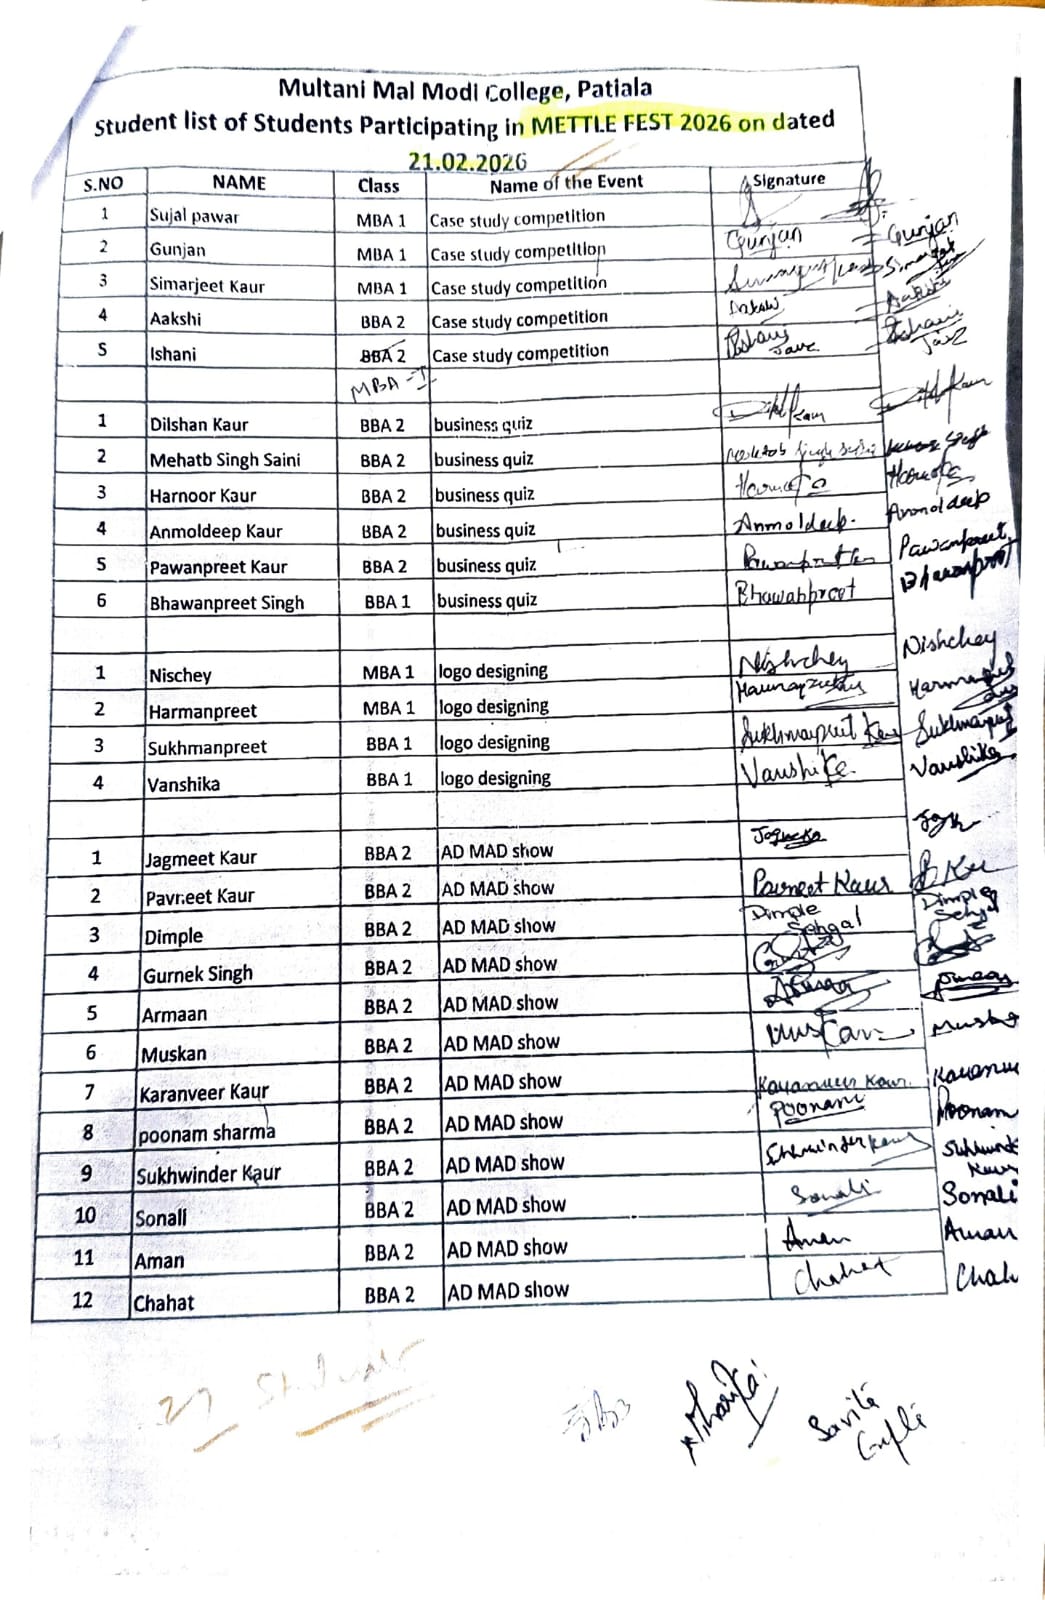 Multani Mal Modi College, Patiala
Student list of Students Participating in METTLE FEST 2026 on dated
21.02.2026
S.NO NAME Class Name of the Event Signature
1 Sujal pawar MBA 1 Case study competition
2 Gunjan MBA 1 Case study competition Gunjan Gunjan
3 Simarjeet Kaur MBA 1 Case study competition
4 Aakshi BBA 2 Case study competition Aakshi Aakshi
5 Ishani BBA 2 Case study competition Ishani Ishani
MBA-I
1 Dilshan Kaur BBA 2 business quiz
2 Mehatb Singh Saini BBA 2 business quiz
3 Harnoor Kaur BBA 2 business quiz
4 Anmoldeep Kaur BBA 2 business quiz Anmoldeep. Anmoldeep
5 Pawanpreet Kaur BBA 2 business quiz Pawanpreet
6 Bhawanpreet Singh BBA 1 business quiz Bhawanpreet Bhawanpreet
1 Nischey MBA 1 logo designing Nishchey Nishchey
2 Harmanpreet MBA 1 logo designing
3 Sukhmanpreet BBA 1 logo designing Sukhmanpreet Kaur
4 Vanshika BBA 1 logo designing Vanshika Vanshika
1 Jagmeet Kaur BBA 2 AD MAD show
2 Pavneet Kaur BBA 2 AD MAD show Pavneet Kaur
3 Dimple BBA 2 AD MAD show Dimple Sehgal Dimple Sehgal
4 Gurnek Singh BBA 2 AD MAD show
5 Armaan BBA 2 AD MAD show
6 Muskan BBA 2 AD MAD show Muskan
7 Karanveer Kaur BBA 2 AD MAD show Karanveer Kaur
8 poonam sharma BBA 2 AD MAD show Poonam Poonam
9 Sukhwinder Kaur BBA 2 AD MAD show Sukhwinder Kaur
10 Sonali BBA 2 AD MAD show Sonali Sonali
11 Aman BBA 2 AD MAD show Aman Aman
12 Chahat BBA 2 AD MAD show Chahat Chah
27
Niharika
Savita